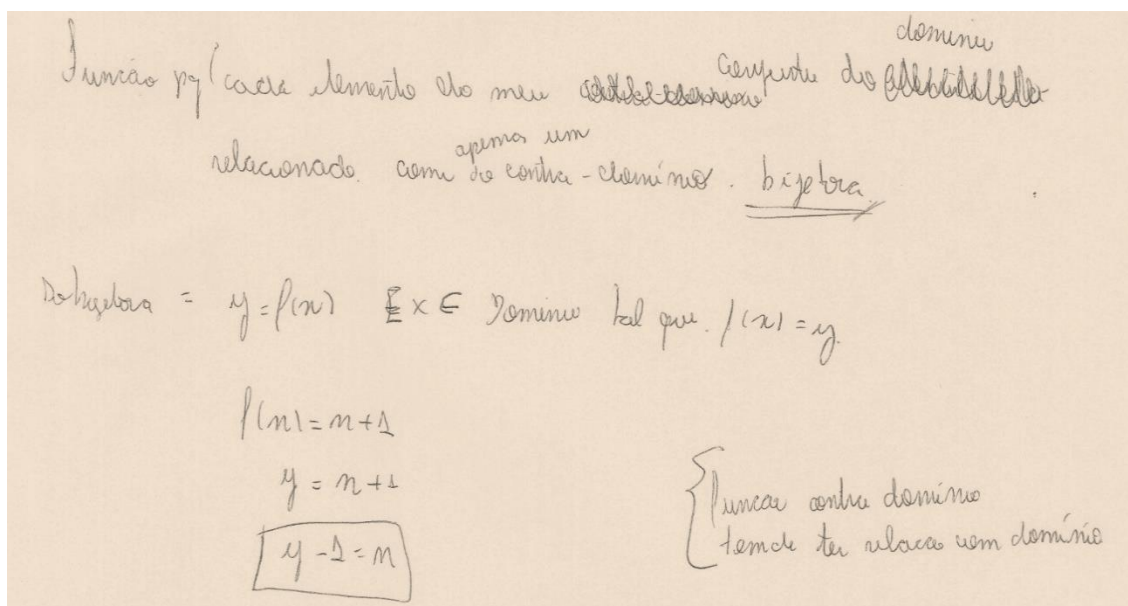 Função pq cada elemento do meu conjunto do dominio
relacionado com apenas um do contra-domínio. bijetora.
= y = f(n) E x ∈ Dominio tal que f(x) = y.
f(n) = n + 1
y = n + 1
y - 1 = n
Funcao contra domínio
tem de ter relacao com domínio